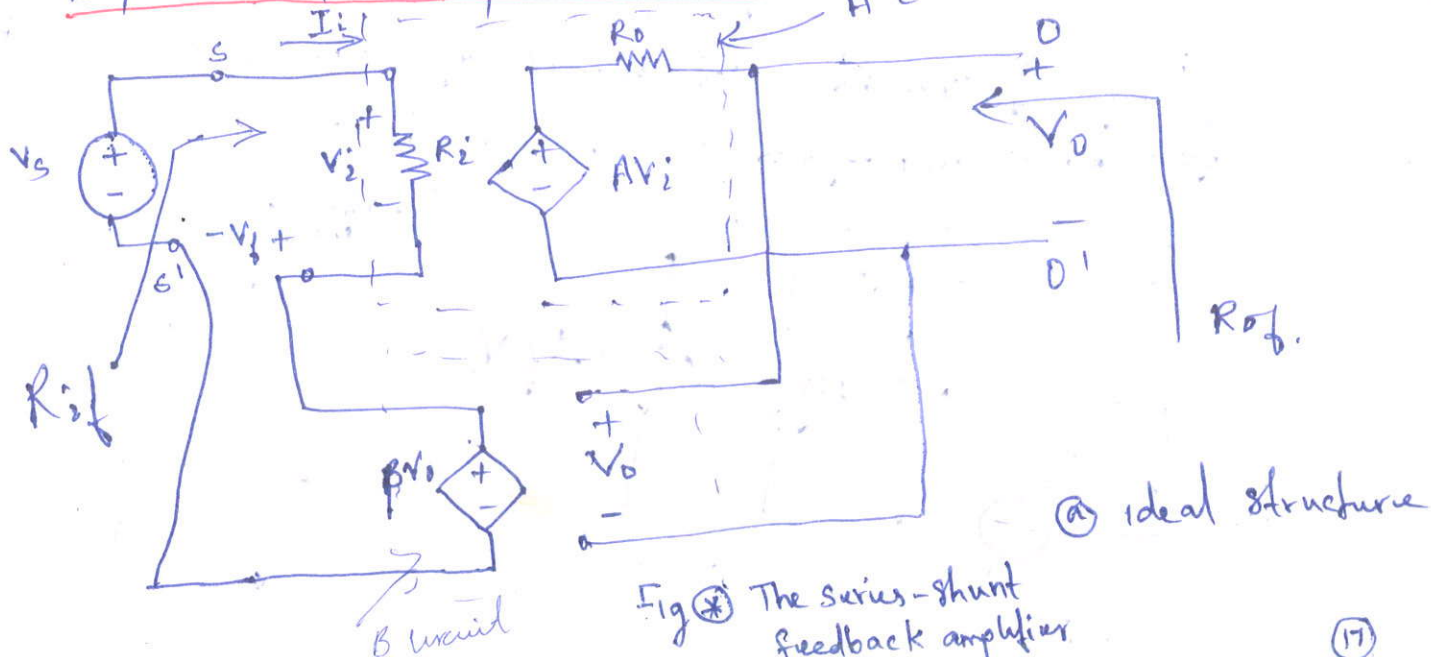 Ii
R0
S
+
V0
+
Vs
+
-
+
Vi
-
Ri
+
-
AVi
-
O'
S'
-Vf +
Rof.
Rif
+
V0
-
βV0
+
-
ⓐ ideal structure
B circuit
Fig ⊛ The series-shunt
feedback amplifier
(17)